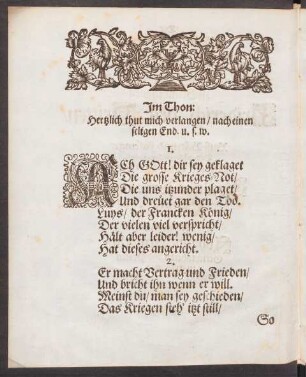 Im Thon:
Hertzlich thut mich verlangen/ nach einen
seligen End. u. s. w.
1.
ACh GOtt! dir sey geklaget
Die grosse Krieges Not/
Die uns itzunder plaget/
Und dreuet gar den Tod.
Luys/ der Francken König/
Der vielen viel verspricht/
Hält aber leider! wenig/
Hat dieses angericht.
2.
Er macht Vertrag und Frieden/
Und bricht ihn wenn er will.
Meinst du/ man sey geschieden/
Das Kriegen steh' itzt still/
So